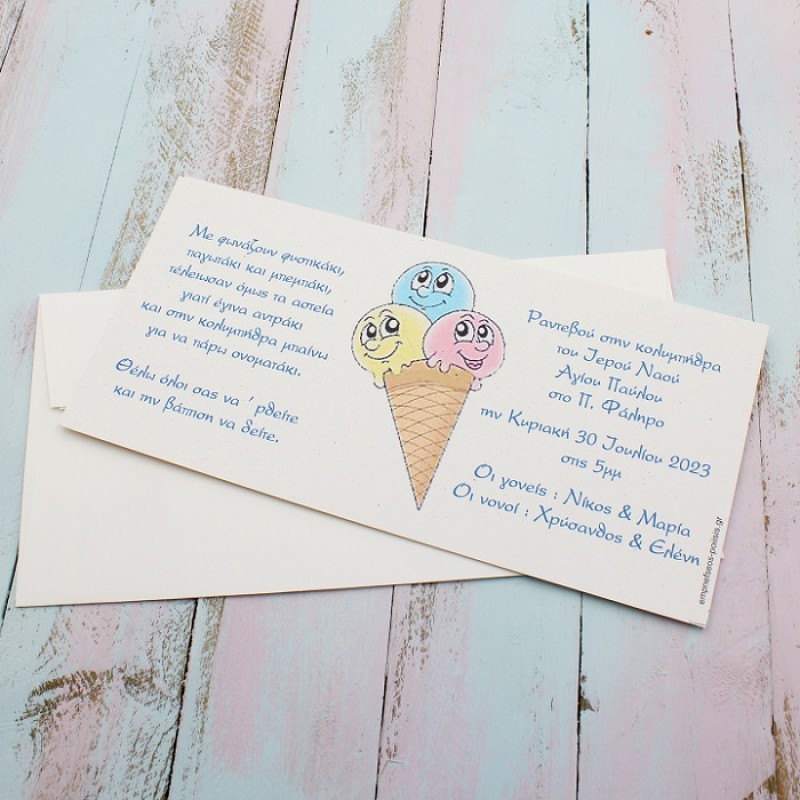 Με φωνάζουν φυστικάκι,
παγωτάκι και μπεμπάκι,
τέλειωσαν όμως τα αστεία
γιατί έγινα αντράκι
και στην κολυμπήθρα μπαίνω
για να πάρω ονοματάκι.
Θέλω όλοι σας να ' ρθείτε
και την βάπτιση να δείτε.
Ραντεβού στην κολυμπήθρα
του Ιερού Ναού
Αγίου Παύλου
στο Π. Φάληρο
την Κυριακή 30 Ιουλίου 2023
στις 5μμ
Οι γονείς : Νίκος & Μαρία
Οι νονοί : Χρύσανθος & Ελένη
empnefseos-poiisis.gr